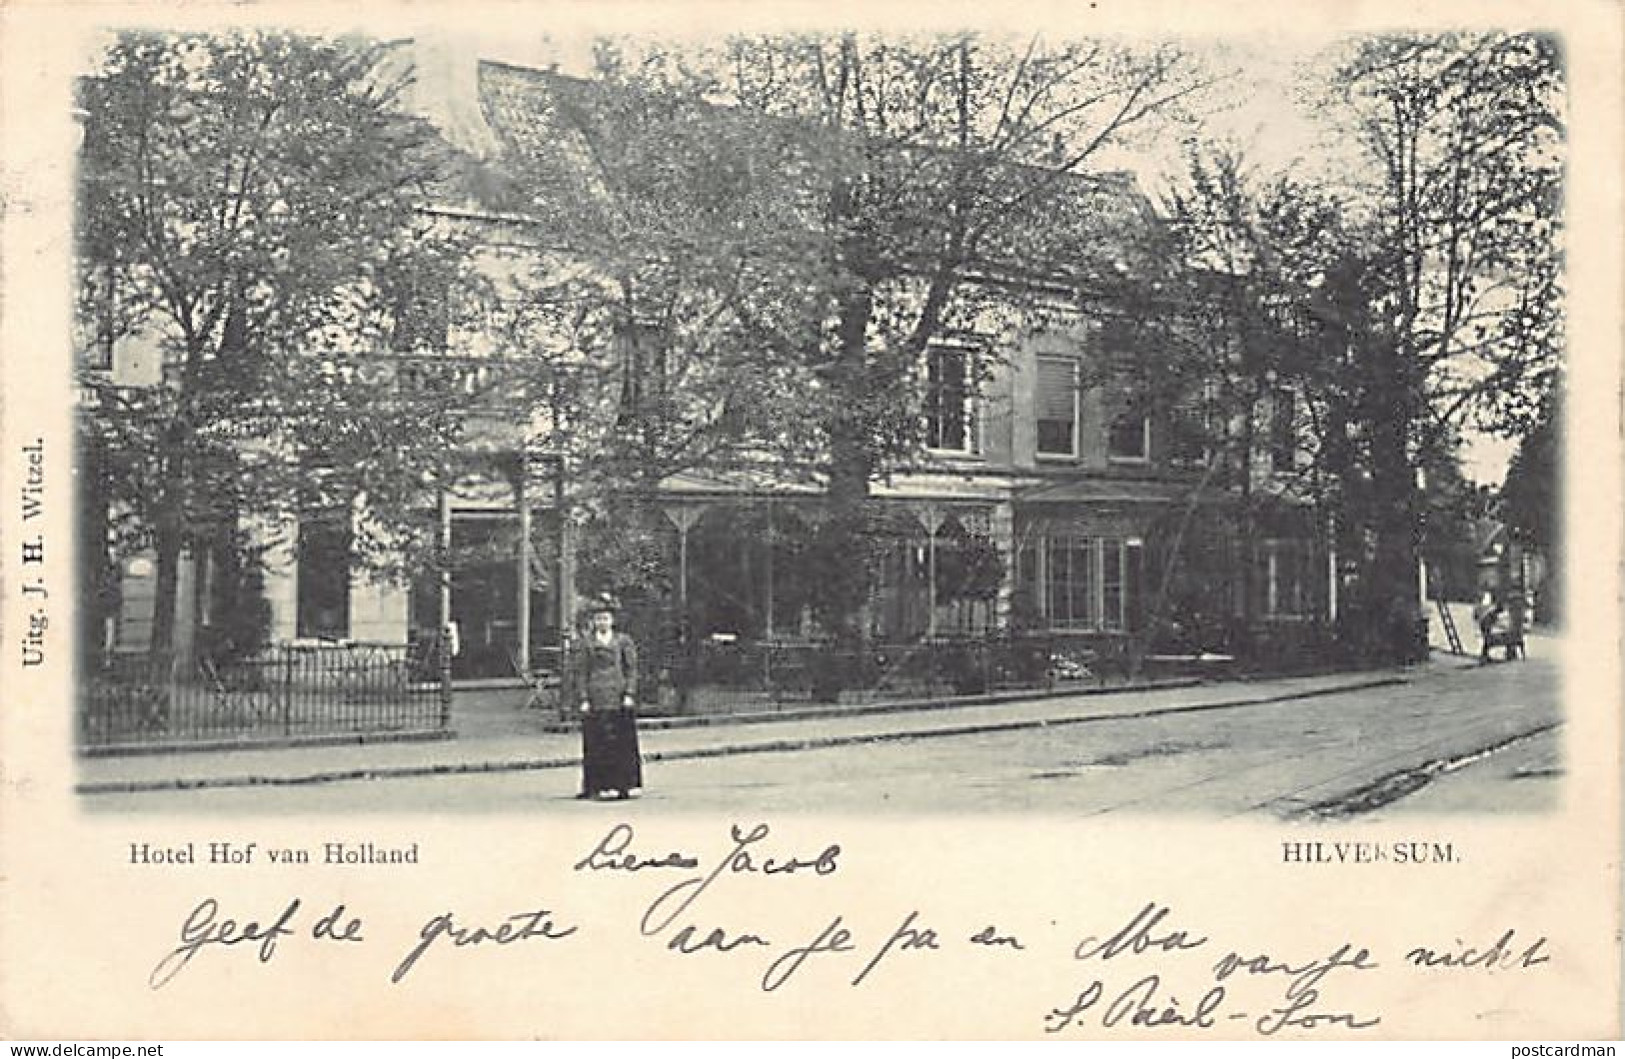 Uitg. J. H. Witzel.
Hotel Hof van Holland
HILVERSUM.
Lieve Jacob
Geef de groete aan Je pa en Ma van je nicht
S. Paërl-Son
www.delcampe.net
postcardman